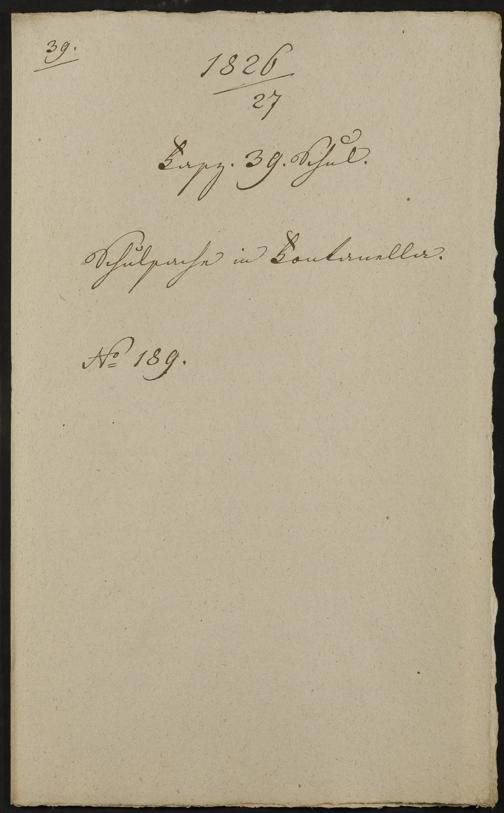 39.
1826
27
Fasz. 39. Schul.
Schulsache in Fontanella.
No 189.